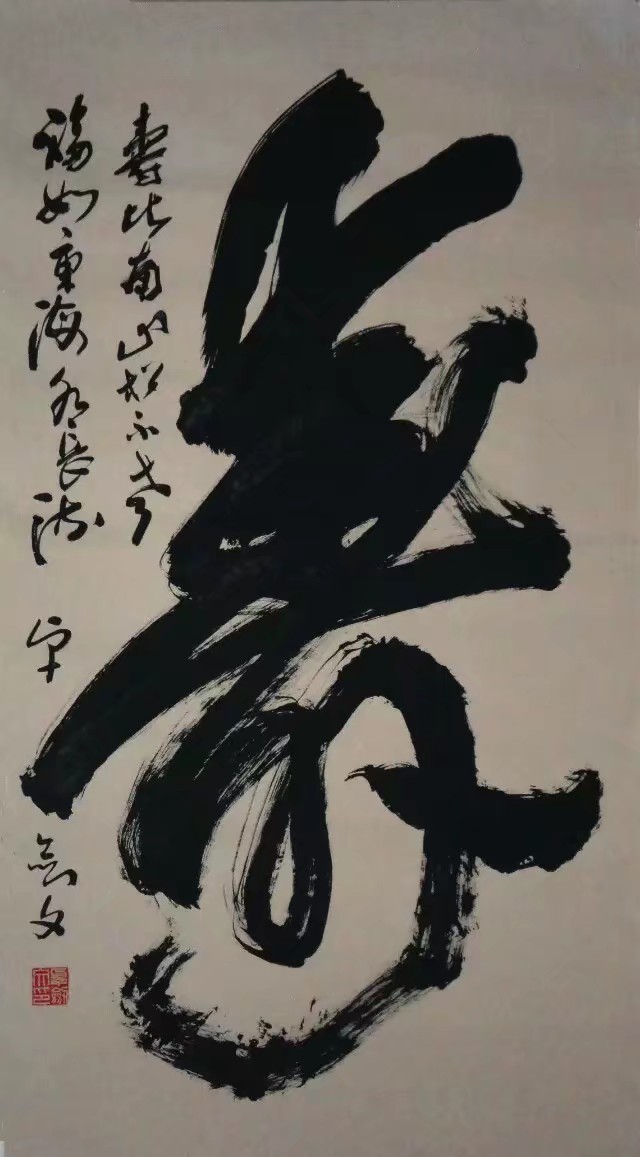 壽
壽比南山松不老
福如東海水長流
文